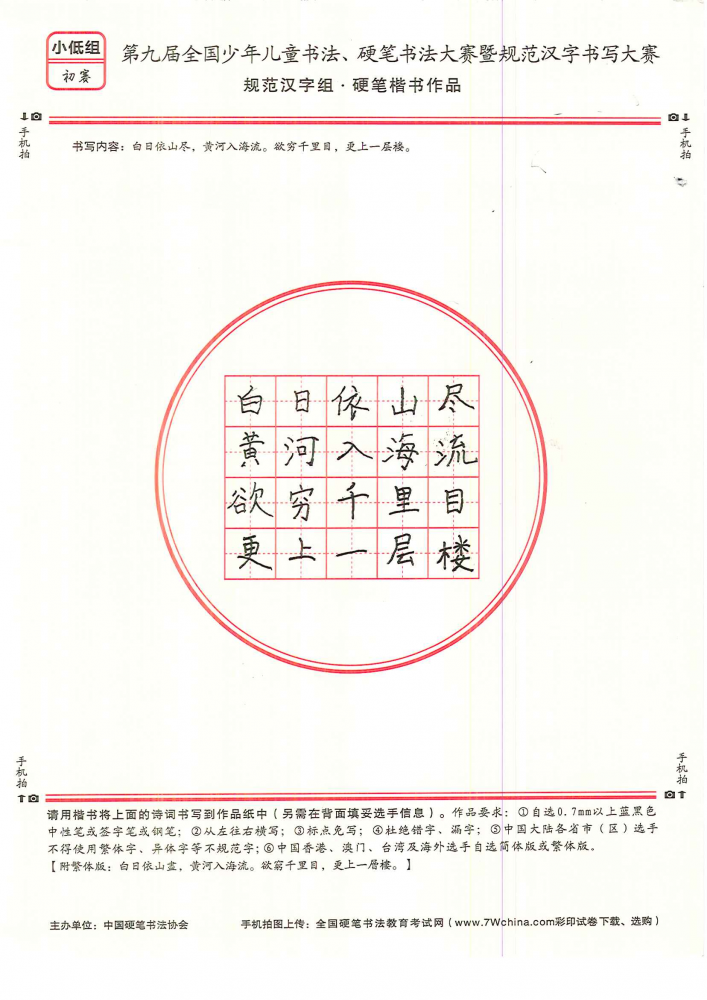 小低组
初赛
第九届全国少年儿童书法、硬笔书法大赛暨规范汉字书写大赛
规范汉字组·硬笔楷书作品
手机拍
手机拍
书写内容：白日依山尽，黄河入海流。欲穷千里目，更上一层楼。
白日依山尽
黄河入海流
欲穷千里目
更上一层楼
手机拍
手机拍
请用楷书将上面的诗词书写到作品纸中（另需在背面填妥选手信息）。作品要求：①自选0.7mm以上蓝黑色
中性笔或签字笔或钢笔；②从左往右横写；③标点免写；④杜绝错字、漏字；⑤中国大陆各省市（区）选手
不得使用繁体字、异体字等不规范字；⑥中国香港、澳门、台湾及海外选手自选简体版或繁体版。
【附繁体版：白日依山盡，黄河入海流。欲窮千里目，更上一層楼。】
主办单位：中国硬笔书法协会
手机拍图上传：全国硬笔书法教育考试网（www.7Wchina.com彩印试卷下载、选购）